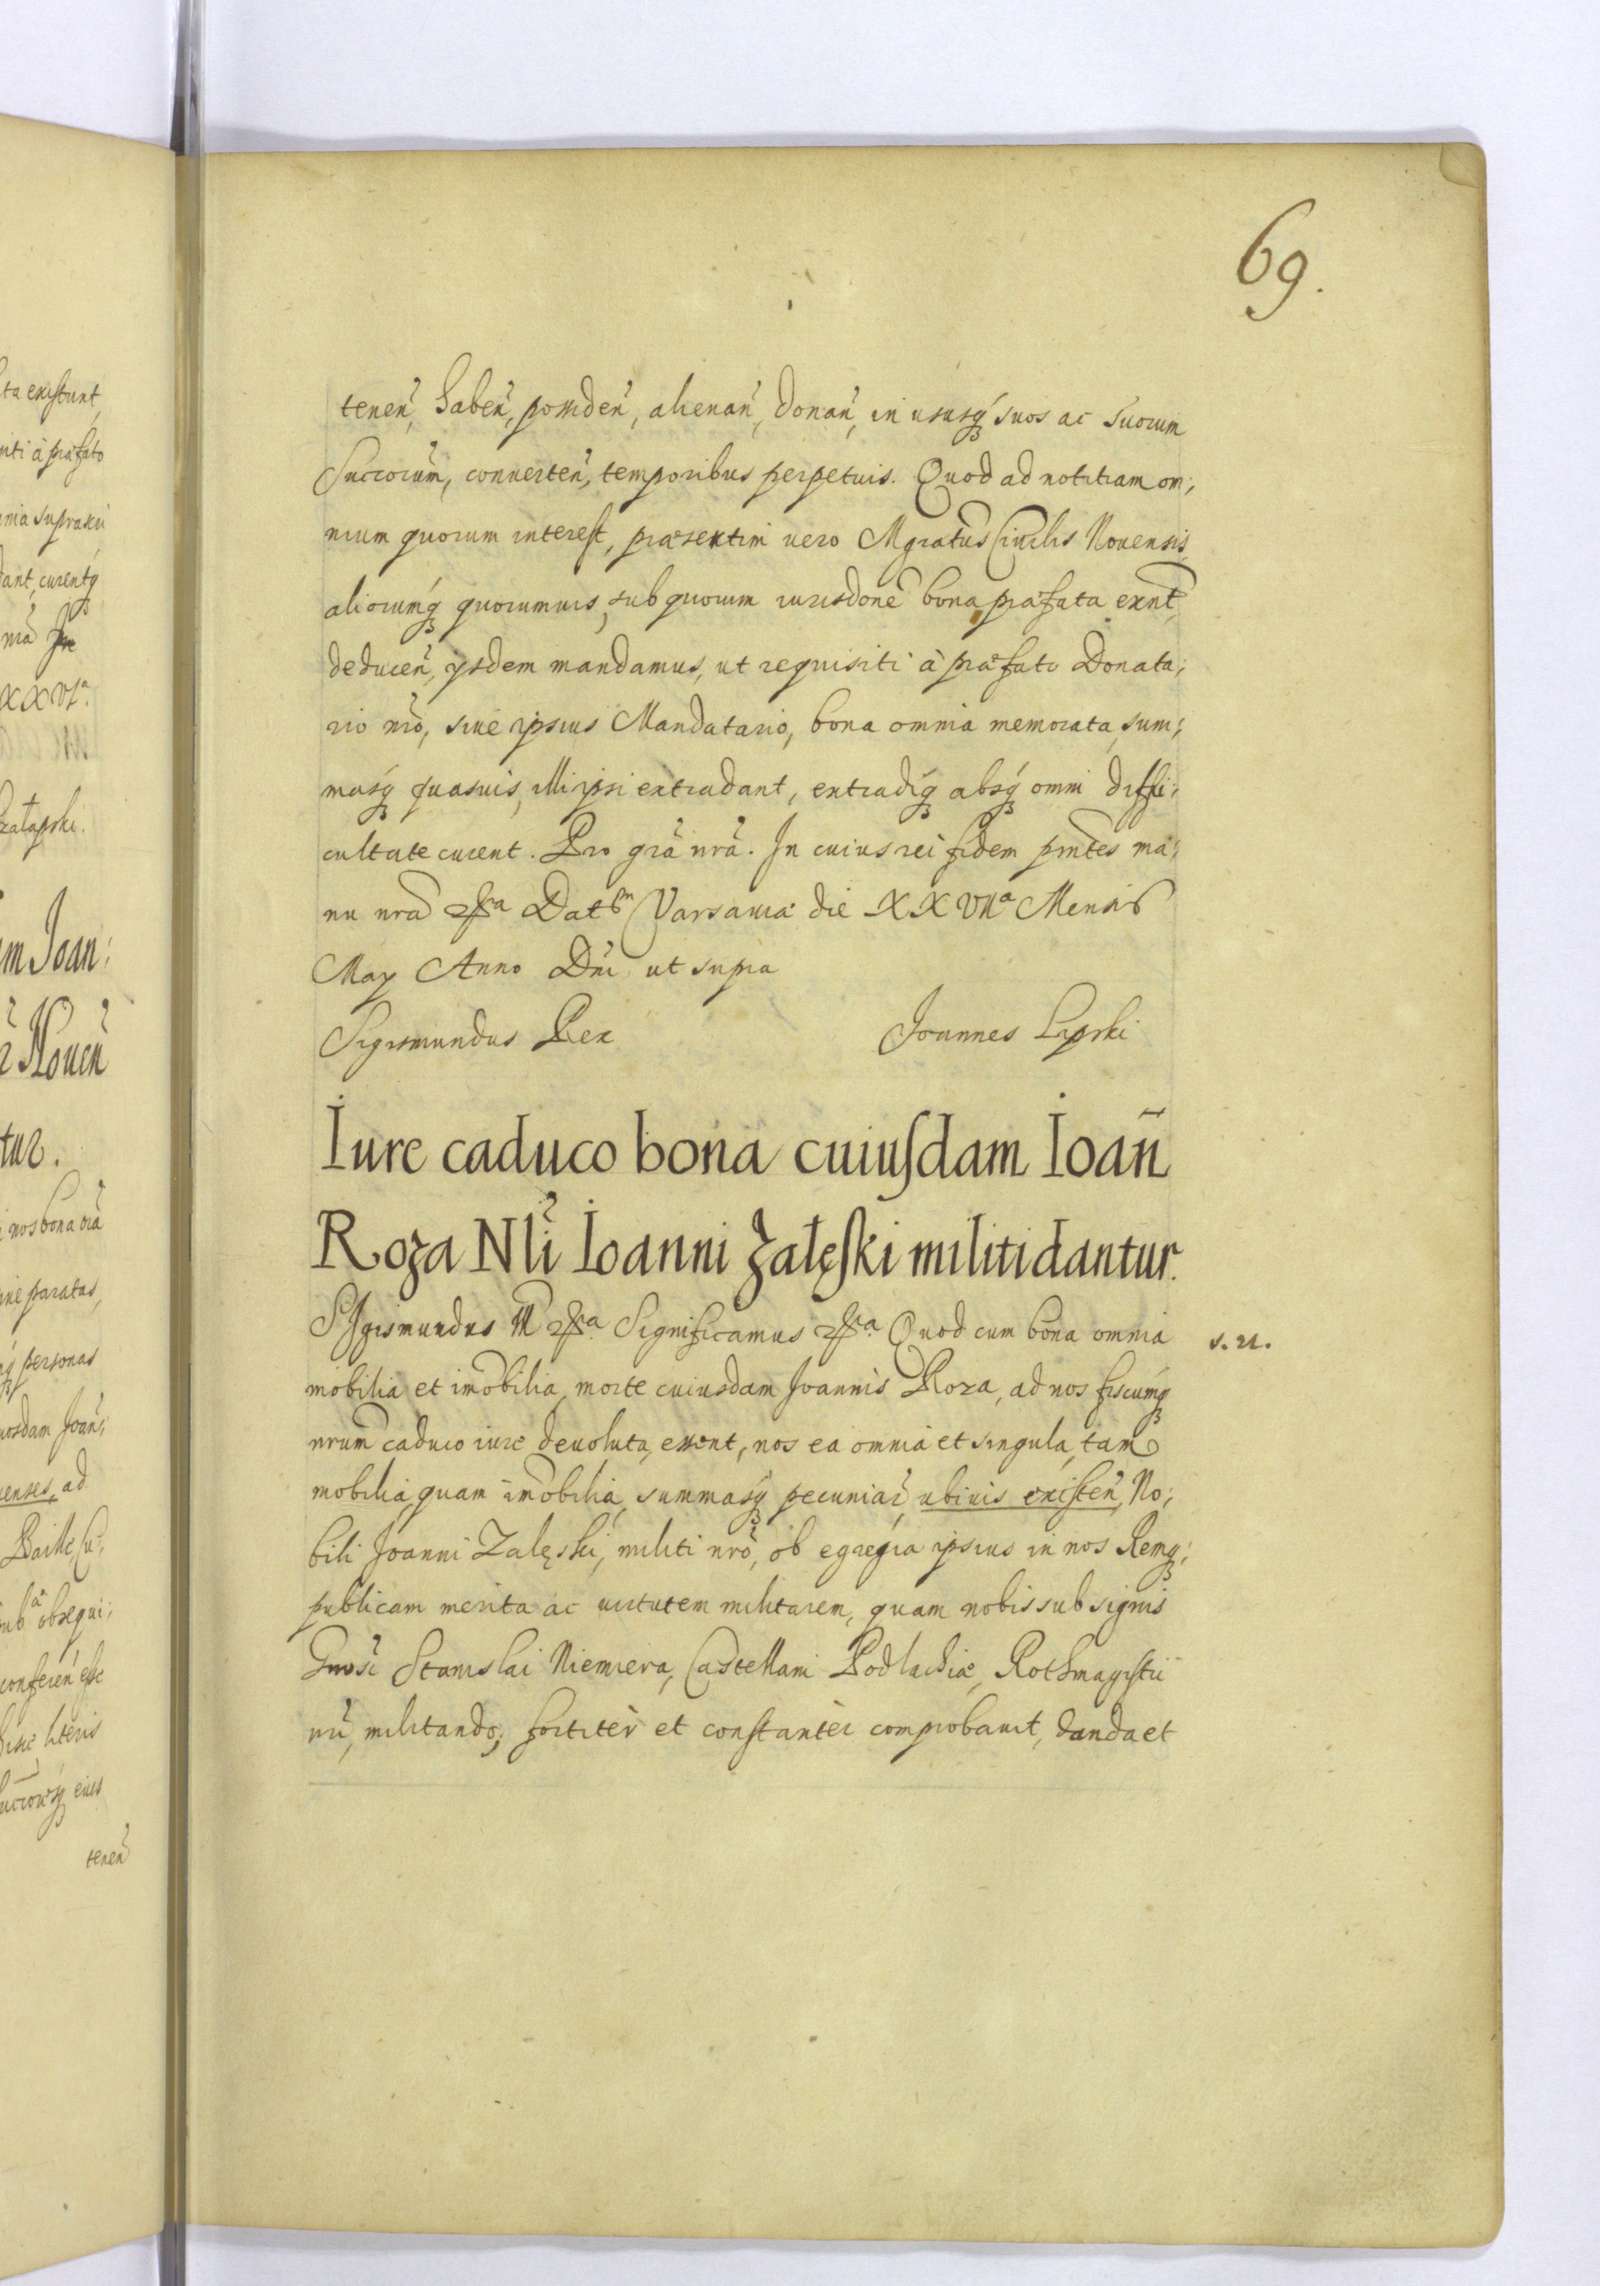 69.
teneñ, habeñ, possideñ, alienañ, donañ, in ususq́ suos ac suorum
Succorum̃, conuerteñ, temporibus perpetuis. Quod ad notitiam om;
nium quorum interest, præsertim uero Mgratus Ciuilis Nouensis,
aliorumq́ quorumuis, sub quorum iurisdone bona præfata exnt̃,
deduceñ, ysdem mandamus, ut requisiti à præfato Donata;
rio nrõ, siue ipsius Mandatario, bona omnia memorata, sum;
masq́ quasuis, illi ipsi extradant, extradiq́ absq́ omni diffi;
cultate curent. Pro grã nrã. In cuius rei fidem pnt̃es ma;
nu nrã &ra Datum Varsauiæ die XXVIIa Mensis
May Anno Dñi ut supra
Sigismundus Rex Joannes Lipski
Iure caduco bona cuiusdam Ioañ
Roza Nli̇̃ Ioanni Zalęski militi dantur.
SIgismundus III &ra. Significamus &ra. Quod cum bona omnia
s. n.
mobilia et im̃obilia, morte cuiusdam Joannis Roza, ad nos fiscumq́
nrum̃ caduco iure deuoluta, essent, nos ea omnia et singula, tam
mobilia, quam im̃obilia, summasq́ pecuniar̃, ubiuis existeñ, No;
bili Joanni Zalęski, militi nrõ, ob egregia ipsius in nos Remq́;
publicam merita ac uirtutem militarem, quam nobis sub signis
Gnosi Stanislai Niemiera, Castellani Podlachiæ, Rothmagistri
nri̇̃, militando, fortitèr et constantèr comprobauit, danda et
ta existunt
niti à præfato
mnia suprascri
dant, curentq́
nrã
XXVIa.
m Joan;
Noueñ
tur.
nos bona
ne paratas,
q́ personas
uosdam Joañ;
uenses, ad
obsequi;
confereñ esse
literis
eius
teneñ